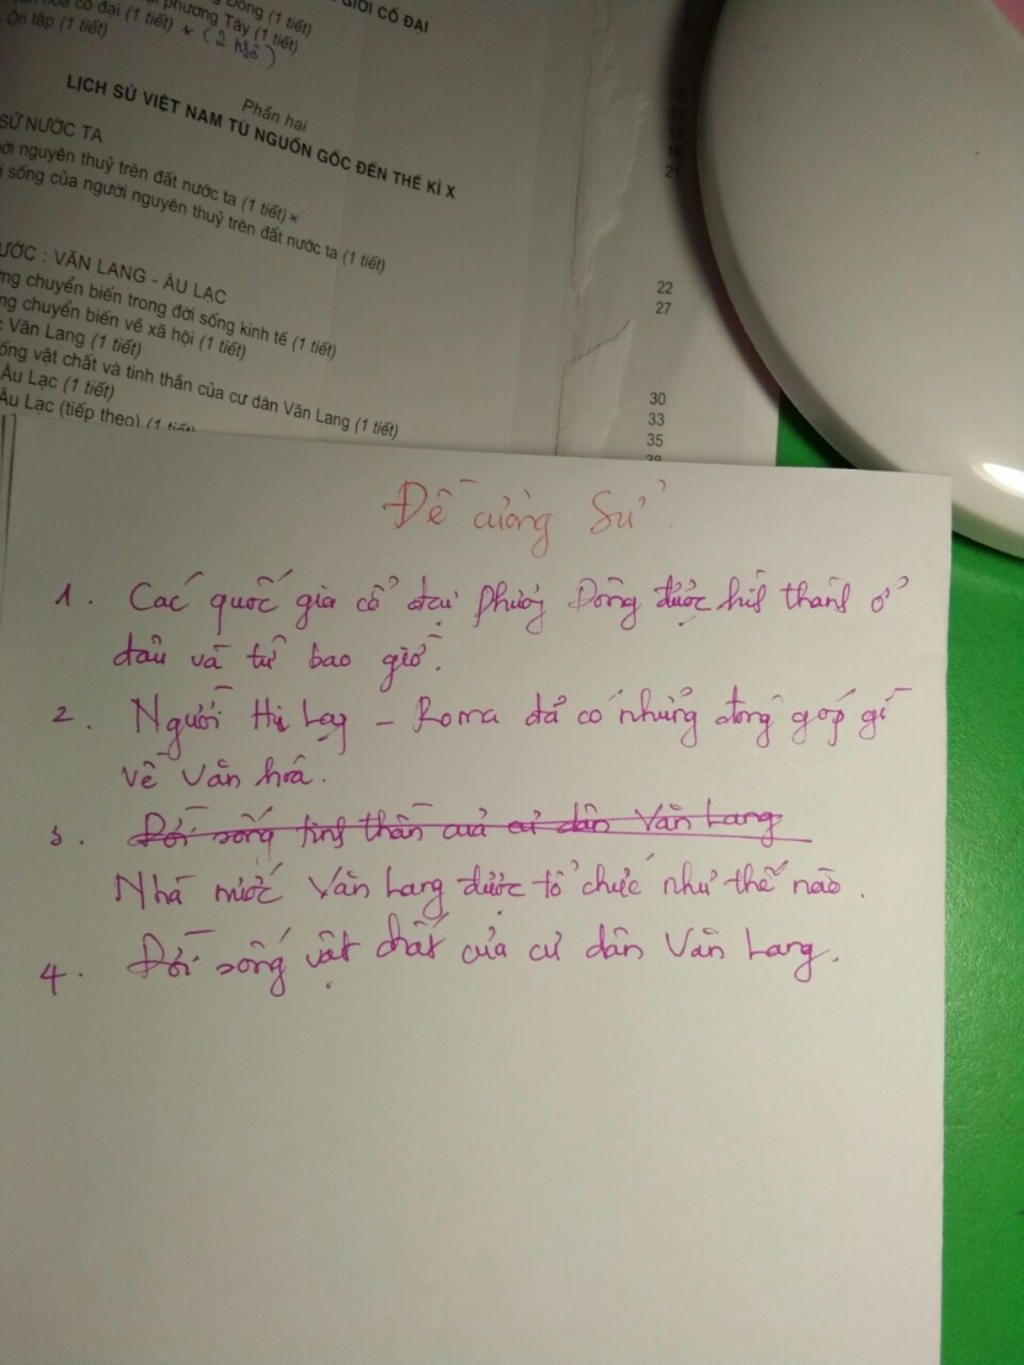 GIỚI CỔ ĐẠI
Đông (1 tiết)
phương Tây (1 tiết)
cổ đại (1 tiết) * (2
Ôn tập (1 tiết)
Phần hai
LỊCH SỬ VIỆT NAM TỪ NGUỒN GỐC ĐẾN THẾ KỈ X
SỬ NƯỚC TA
nguyên thuỷ trên đất nước ta (1 tiết) *
sống của người nguyên thuỷ trên đất nước ta (1 tiết)
21
: VĂN LANG - ÂU LẠC
chuyển biến trong đời sống kinh tế (1 tiết) 22
chuyển biến về xã hội (1 tiết) 27
Văn Lang (1 tiết)
vật chất và tinh thần của cư dân Văn Lang (1 tiết) 30
Âu Lạc (1 tiết) 33
Âu Lạc (tiếp theo) (1 tiết) 35
Đề cương Sử
1. Các quốc gia cổ đại phương Đông được hình thành ở
đâu và từ bao giờ.
2. Người Hy Lạp - Roma đã có những đóng góp gì
về văn hoá.
3. Đời sống tinh thần của cư dân Văn Lang
Nhà nước Văn Lang được tổ chức như thế nào.
4. Đời sống vật chất của cư dân Văn Lang.